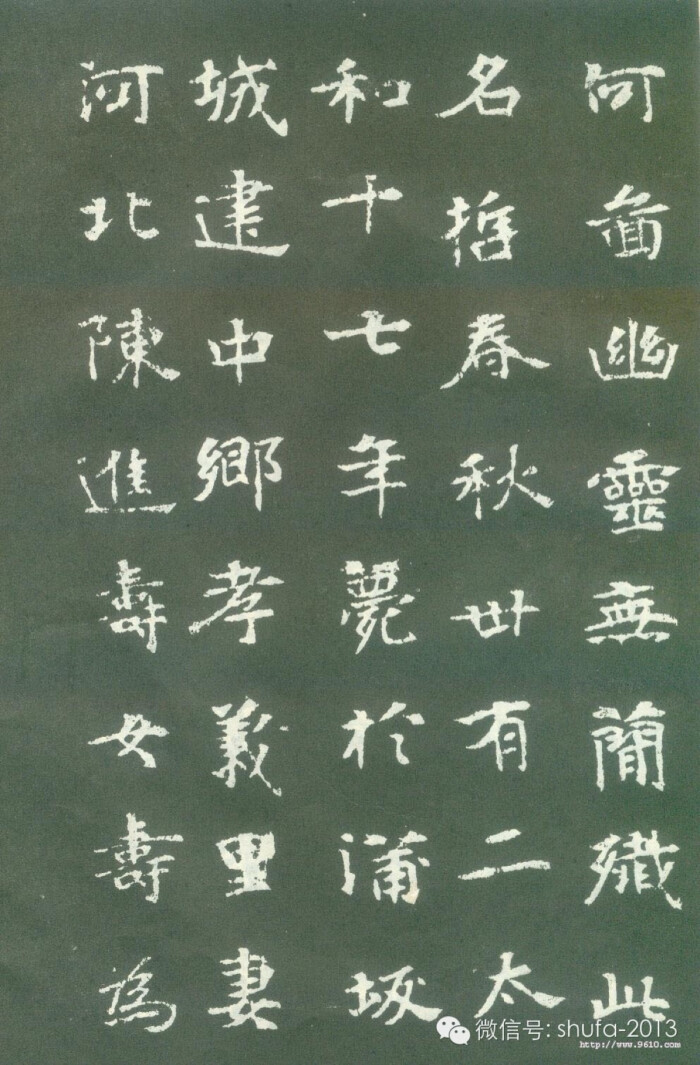 何啚幽靈無簡殱此
名哲春秋卅有二太
和十七年薨於蒲坂
城建中鄉孝義里妻
河北陳進壽女壽為
微信号: shufa-2013
http://www.9610.com/